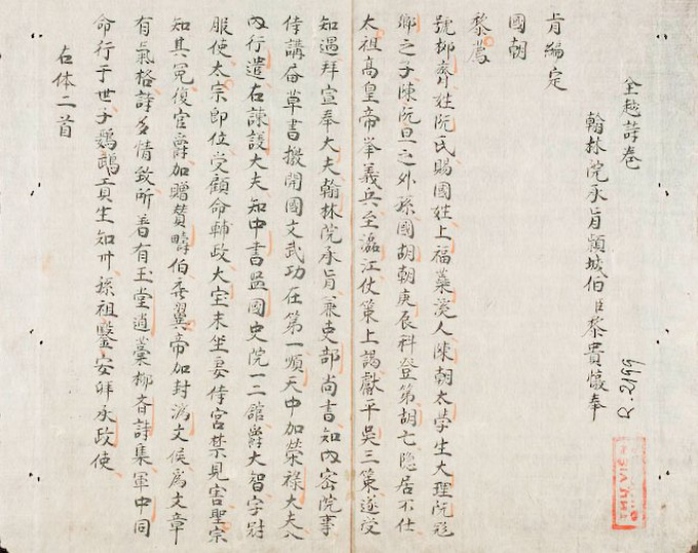 全越詩卷
翰林院承旨頴城伯臣黎貴惇奉
旨編定
國朝
黎廌
號抑齋姓阮氏賜國姓上福蘂溪人陳朝太學生大理阮飛
卿之子陳阮旦之外孫國胡朝庚辰科登第胡亡隐居不仕
太祖高皇帝举義兵至瀘江仗策上謁獻平吳三策遂受
知遇拜宣奉大夫翰林院承旨兼吏部尚書知内密院事
侍講啓草書撥開國文武功在第一順天中加榮祿大夫入
内行遣右諫議大夫知中書監國史院一二舘爵大智字
服使太宗即位受顧命輔政大宝末坐妾侍宮禁見害聖宗
知其冤復官爵加贈賛疇伯 翼帝加封濟文侯爲文章
有氣格詩多情致所着有玉堂遺藁抑斉詩集軍中同
命行于世子鸚鵡員生知州孫祖鑒安 承政使
右体二首
R.2199